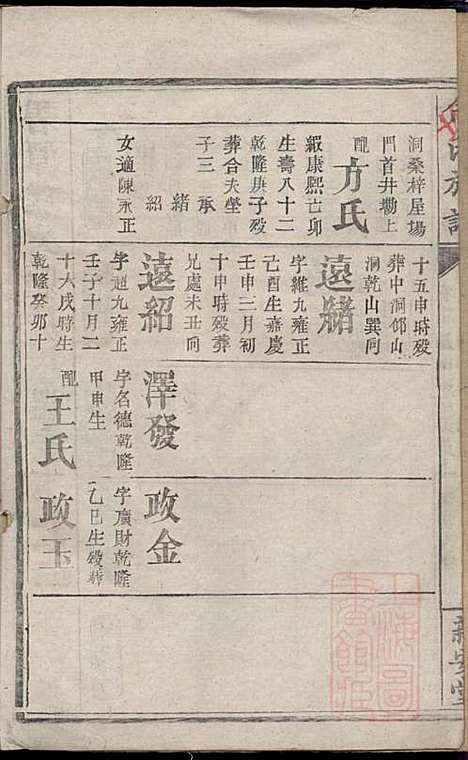 洞桑梓屋場
門首井塝上
配方氏
緞康熙亡卯
生壽八十二
乾隆庚子殁
葬合夫塋
子三 承
緒
紹
女適陳永正
十五申時殁
葬中洞邱山
洞乾山巽向
遠緒
字維九雍正
己酉生嘉慶
壬申三月初
十申時殁葬
兄處未丑向
遠紹
字超九雍正
壬子十月二
十六戌時生
乾隆癸卯十
澤發
字名德乾隆
甲申生
配王氏
政金
字廣財乾隆
乙巳生殁葬
政玉
上海圖書館藏